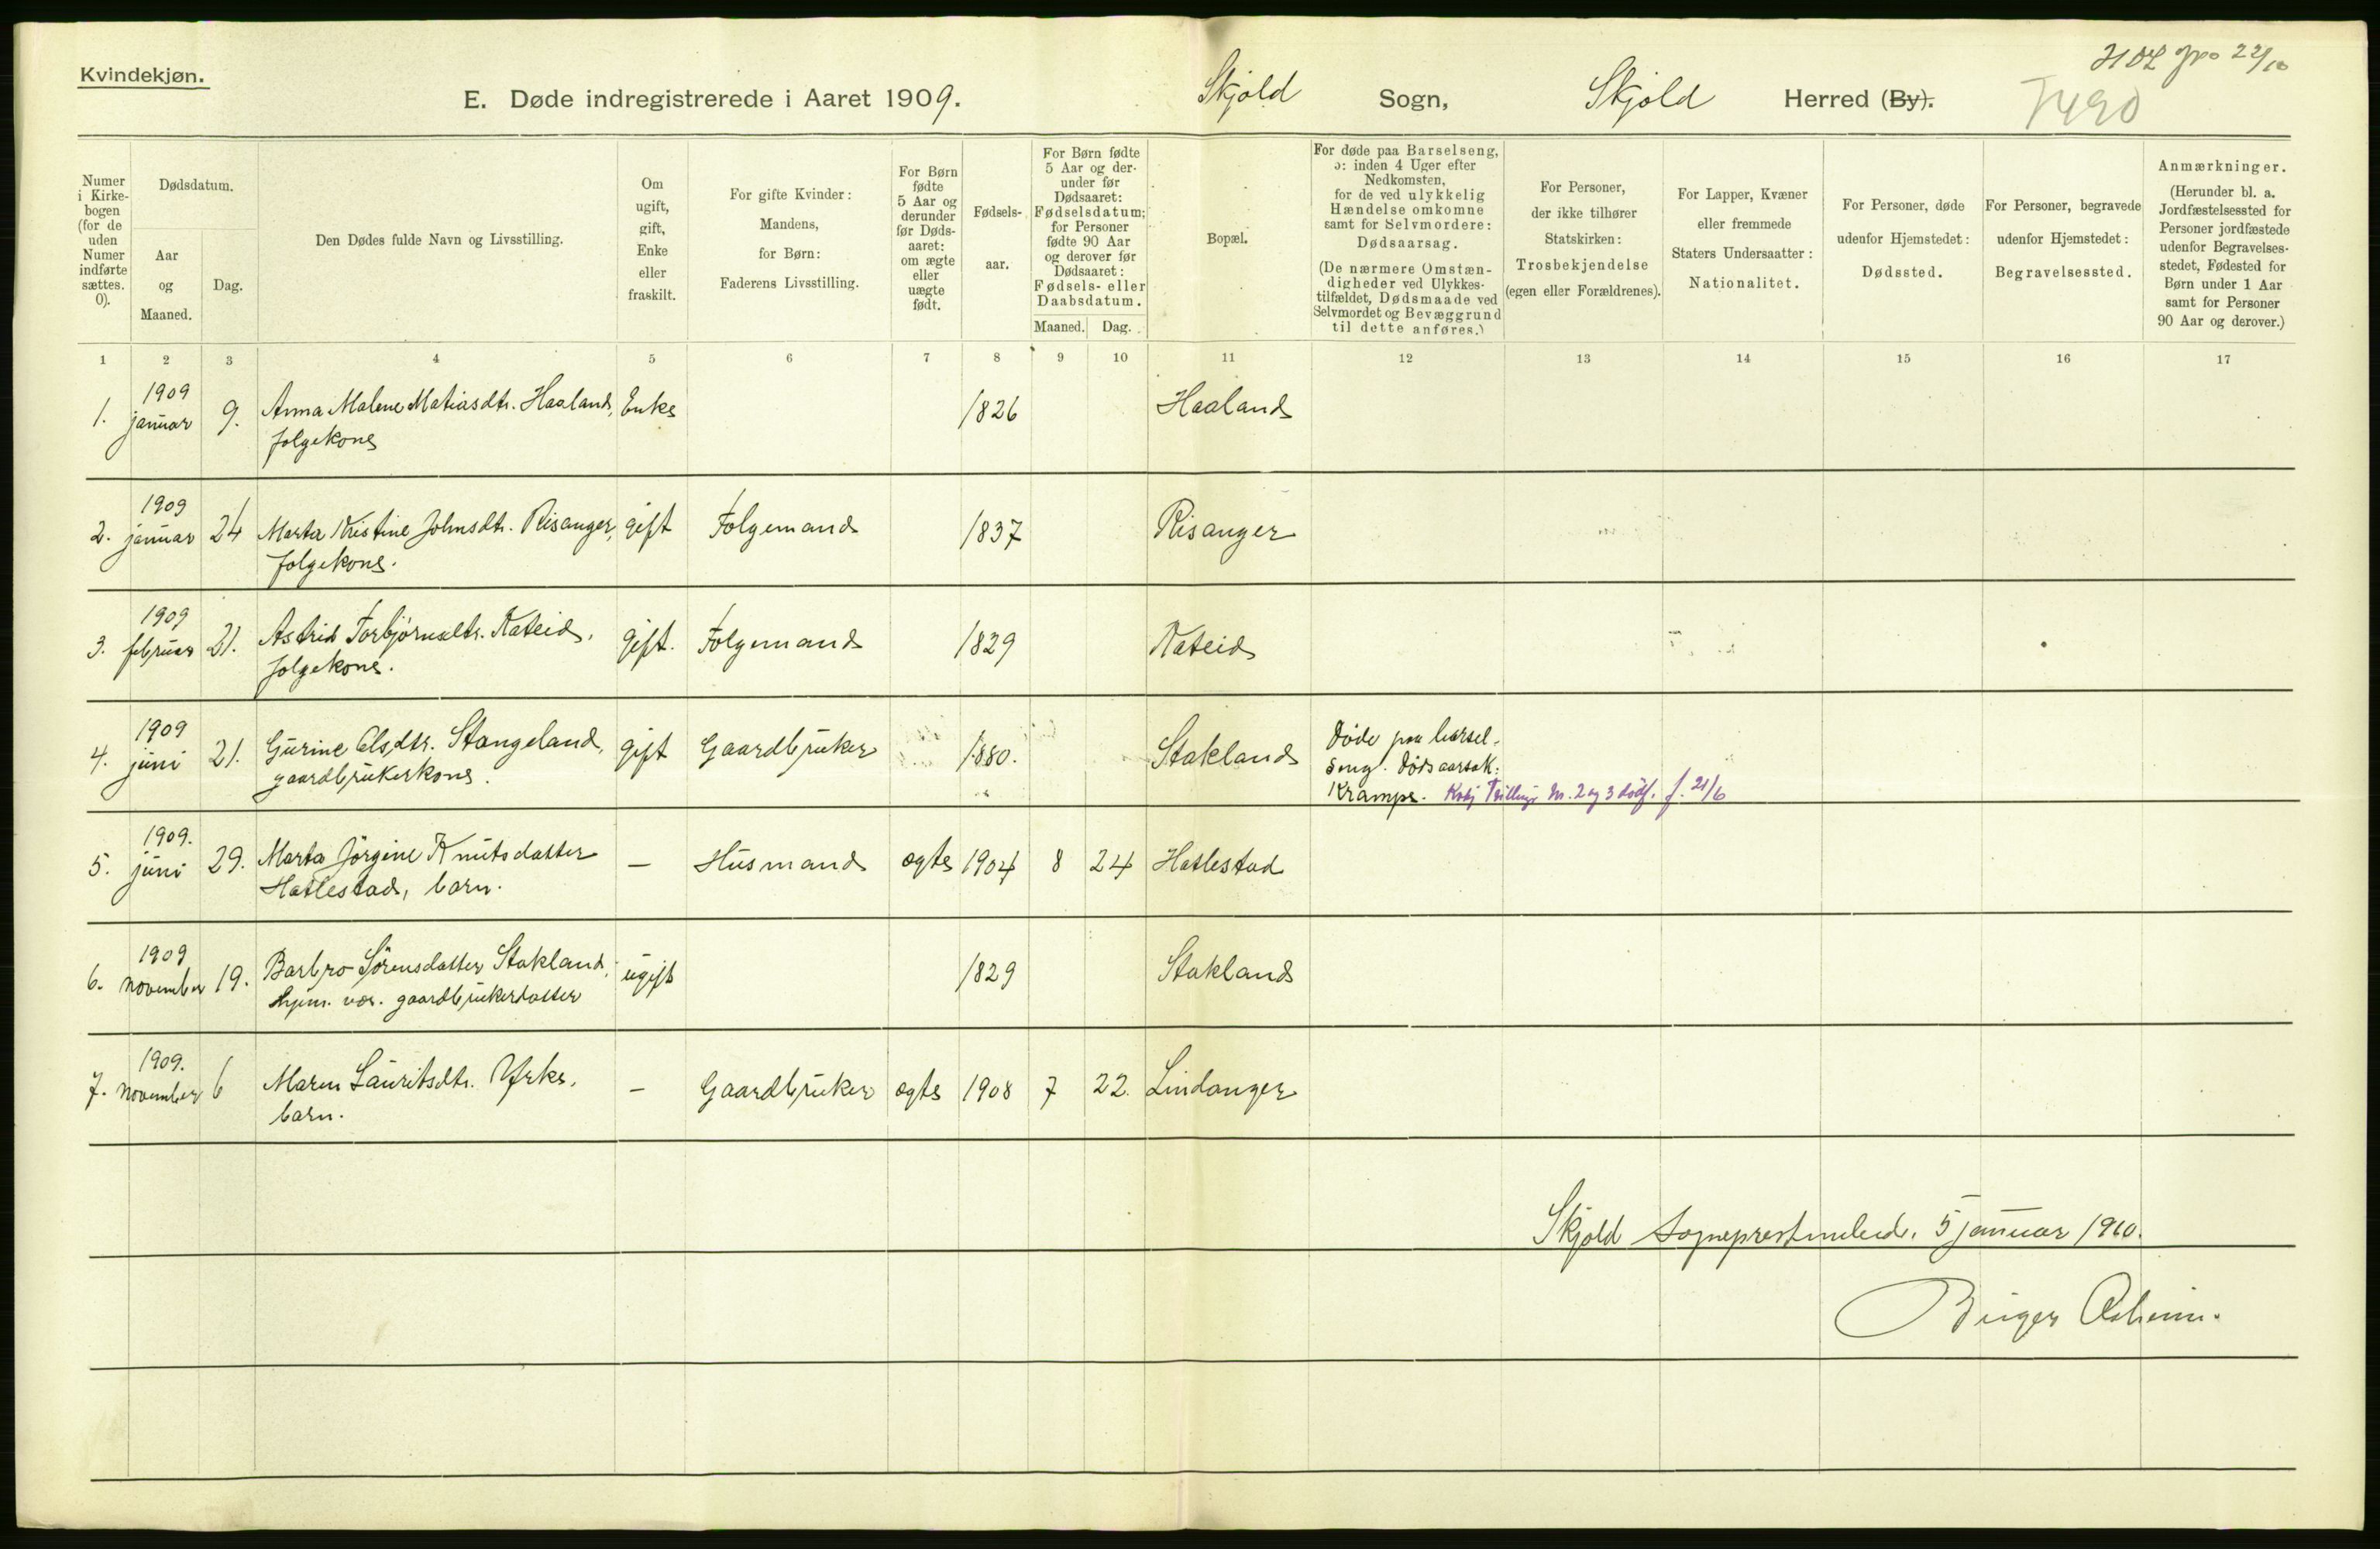 Kvindekjøn.
E. Døde indregistrerede i Aaret 1909.
Skjold Sogn, Skjold Herred (By).
22/10
7490
Numer i Kirkebogen (for de uden Numer indførte sættes. 0).
Dødsdatum.
Aar og Maaned.
Dag.
Den Dødes fulde Navn og Livsstilling.
Om ugift, gift, Enke eller fraskilt.
For gifte Kvinder: Mandens, for Børn: Faderens Livsstilling.
For Børn fødte 5 Aar og derunder før Dødsaaret: om ægte eller uægte født.
Fødselsaar.
For Børn fødte 5 Aar og derunder før Dødsaaret: Fødselsdatum; for Personer fødte 90 Aar og derover før Dødsaaret: Fødsels- eller Daabsdatum.
Maaned. Dag.
Bopæl.
For døde paa Barselseng, ɔ: inden 4 Uger efter Nedkomsten, for de ved ulykkelig Hændelse omkomne samt for Selvmordere: Dødsaarsag.
(De nærmere Omstændigheder ved Ulykkestilfældet, Dødsmaade ved Selvmordet og Bevæggrund til dette anføres.)
For Personer, der ikke tilhører Statskirken: Trosbekjendelse (egen eller Forældrenes).
For Lapper, Kvæner eller fremmede Staters Undersaatter: Nationalitet.
For Personer, døde udenfor Hjemstedet: Dødssted.
For Personer, begravede udenfor Hjemstedet: Begravelsessted.
Anmærkninger.
(Herunder bl. a. Jordfæstelsessted for Personer jordfæstede udenfor Begravelsesstedet, Fødested for Børn under 1 Aar samt for Personer 90 Aar og derover.)
1 2 3 4 5 6 7 8 9 10 11 12 13 14 15 16 17
1909
1. januar 9. Anna Malene Matiasdtr. Haaland, Enke 1826 Haaland
folgekone
1909
2. januar 24 Marta Kristine Johnsdtr. Risanger, gift Folgemand 1837 Risanger
folgekone.
1909
3. februar 21. Astrid Torbjørnsdtr. Kateid, gift. Folgemand 1829 Kateid
folgekone.
1909
4. juni 21. Gurine Olsdtr. Stangeland, gift Gaardbruker 1880. Stakland
gaardbrukerkone.
Døde paa barsel-
seng. Dødsaarsak:
Krampe. Trillinge Nr. 2 og 3 dødf. f. 21/6
1909.
5. juni 29. Marta Jørgine Knutsdatter – Husmand ægte 1904 8 24 Hatlestad
Hatlestad, barn.
1909
6. november 19. Barbro Sørensdatter Stakland, ugift 1829 Stakland
hjem. vær. gaardbrukerdatter
1909.
7. november 6 Maren Lauritsdtr. Yrke, – Gaardbruker ægte 1908 7 22. Lindanger
barn.
Skjold sogneprestembede, 5 januar 1910.
Birger